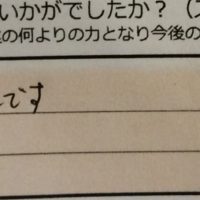 いかがでしたか？
の何よりの力となり今後の
です